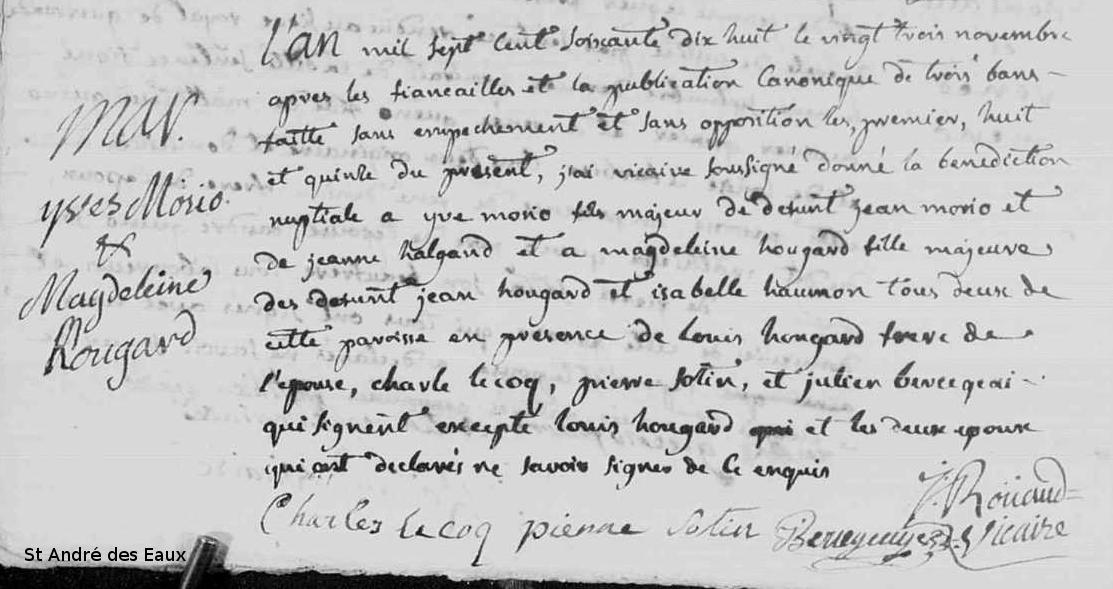 l'an mil sept cent soixante dix huit le vingt trois novembre
apres les fiancailles et la publication Canonique de trois bans
faitte sans empechement et sans opposition les, premier, huit
et quinze du présent, j'ai vicaire soussigné donné la benediction
nuptiale a yve morio fils majeur de defunt jean morio et
de jeanne halgand et a magdeleine hougard fille majeure
des defunt jean hougard et isabelle haumon tous deux de
cette paroisse en presence de louis hougard frere de
l'epouse, charle lecoq, pierre sotin, et julien
qui signent excepté louis hougard qui et les deux epoux
qui ont declarés ne savoir signer de ce enquis
Mar.
yves Morio
&
Magdeleine
Hougard
Charles lecoq pierre sotin
J. Roüaud
Vicaire
St André des Eaux